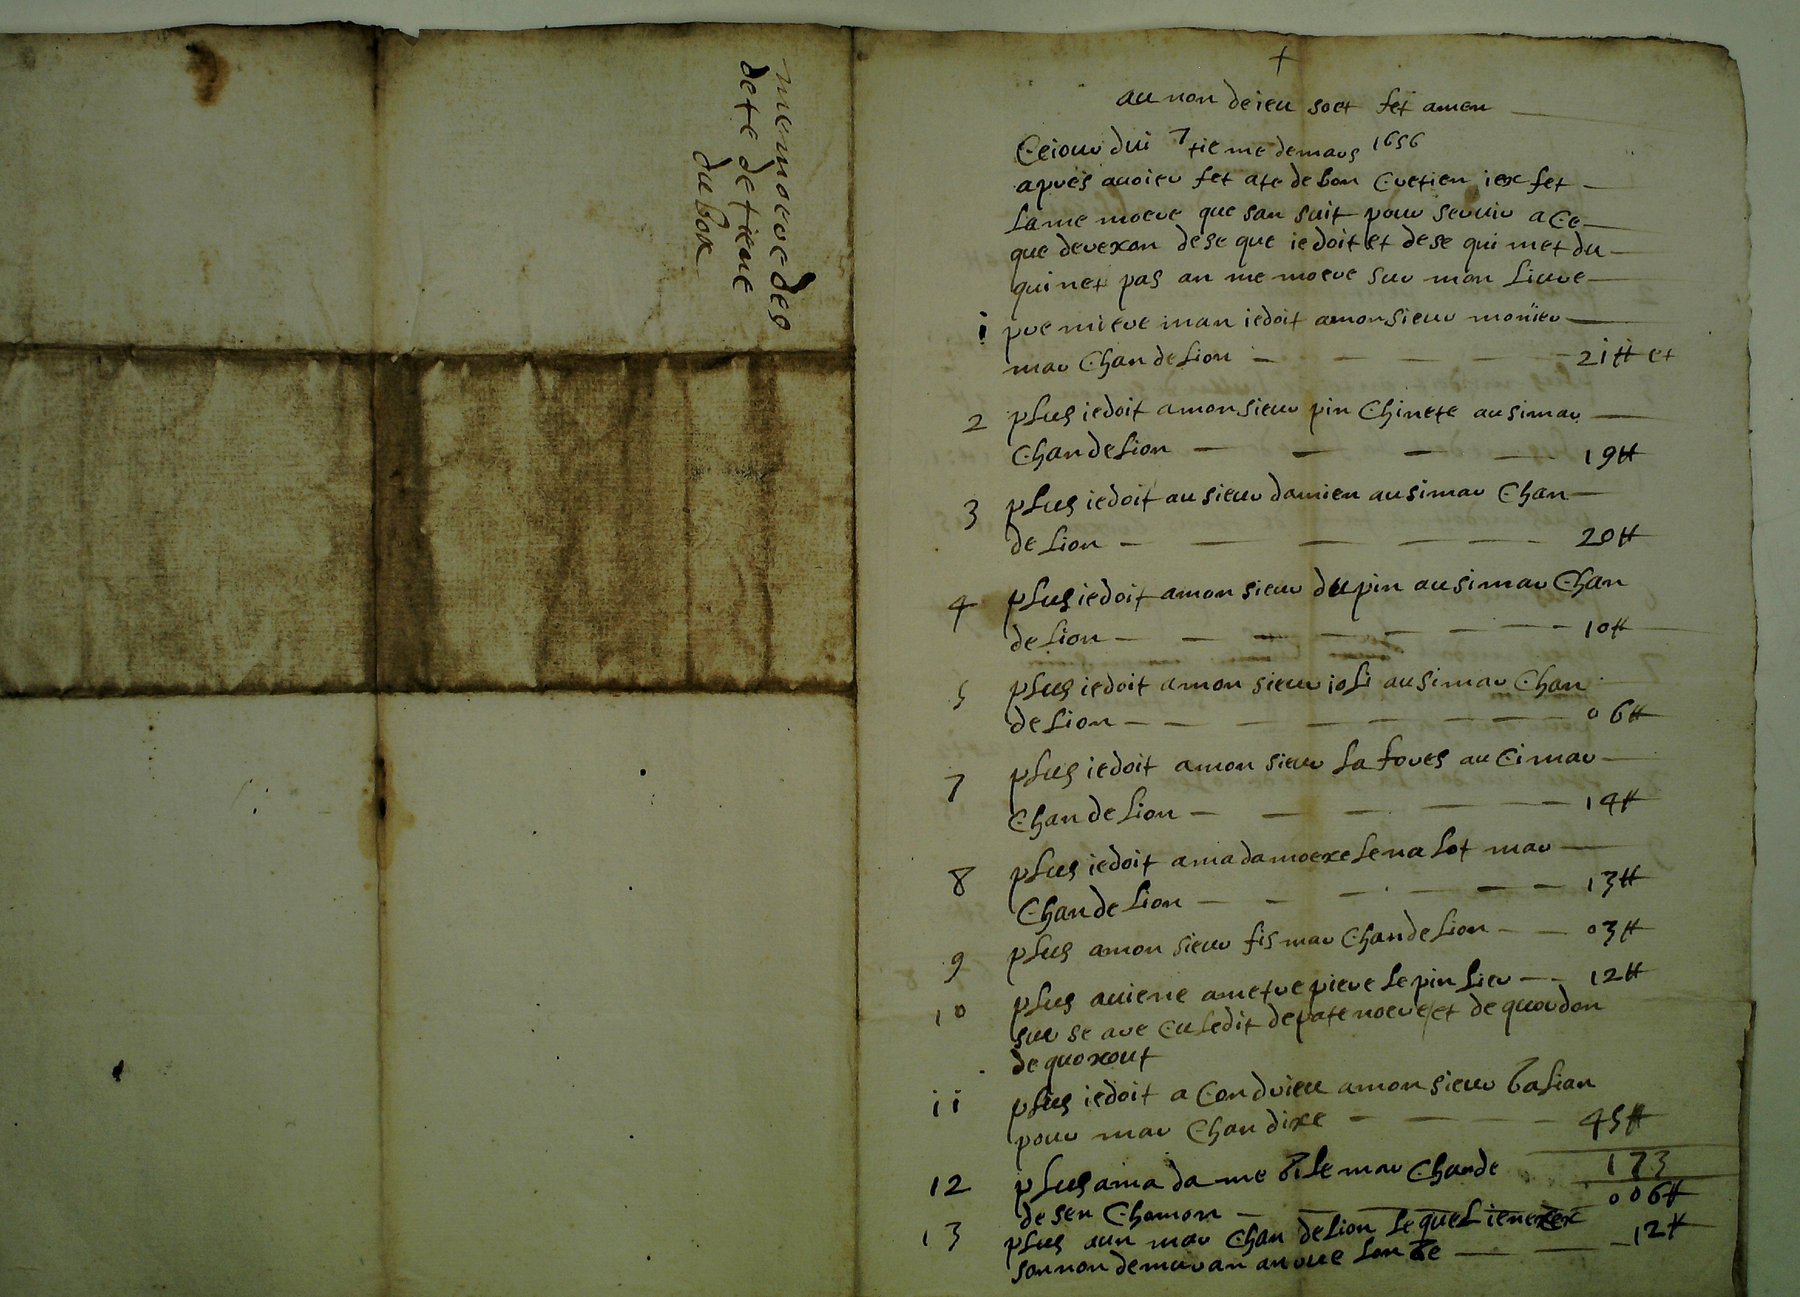 memoere des
dete detiene
du box
+
au non de ieu soet fet amen
Ce iour dui 7 tieme de mars 1656
apres auoier fet ate de bon Cretien iex fet
la me moere que san suit pour seruir a Ce
que derexon de se que ie doit et de se qui met du
qui net pas an me moere sur mon Liure
i pre miere man ie doit a monsieur monier
mar Chan de Lion 21 ₶ et
2 plus ie doit a monsieur pin Chinete ausi mar
Chan de Lion 19 ₶
3 plus ie doit au sieur damien ausi mar Chan
de Lion 20 ₶
4 plus ie doit a mon sieur du pin ausi mar Chan
de Lion 10 ₶
5 plus ie doit a mon sieur ioli ausi mar Chan
de Lion 06 ₶
7 plus ie doit a mon sieur la fores au Ci mar
Chan de Lion 14 ₶
8 plus ie doit a ma damoexele na lot mar
Chan de Lion 13 ₶
9 plus a mon sieur fis mar Chan de Lion 03 ₶
10 plus a uiene a metre piere le pin Lier 12 ₶
sur se are Cu ledit de pate noere et de quordon
de quoxout
ii plus ie doit a Condrieu a mon sieur balian
pour mar Chan dixe 45 ₶
173
12 plus a ma da me bile mar Chande
de sen Chamon 006 ₶
13 plus a un mar Chan de Lion le quel ie ne
son non demuran an rue Lon be 12 ₶